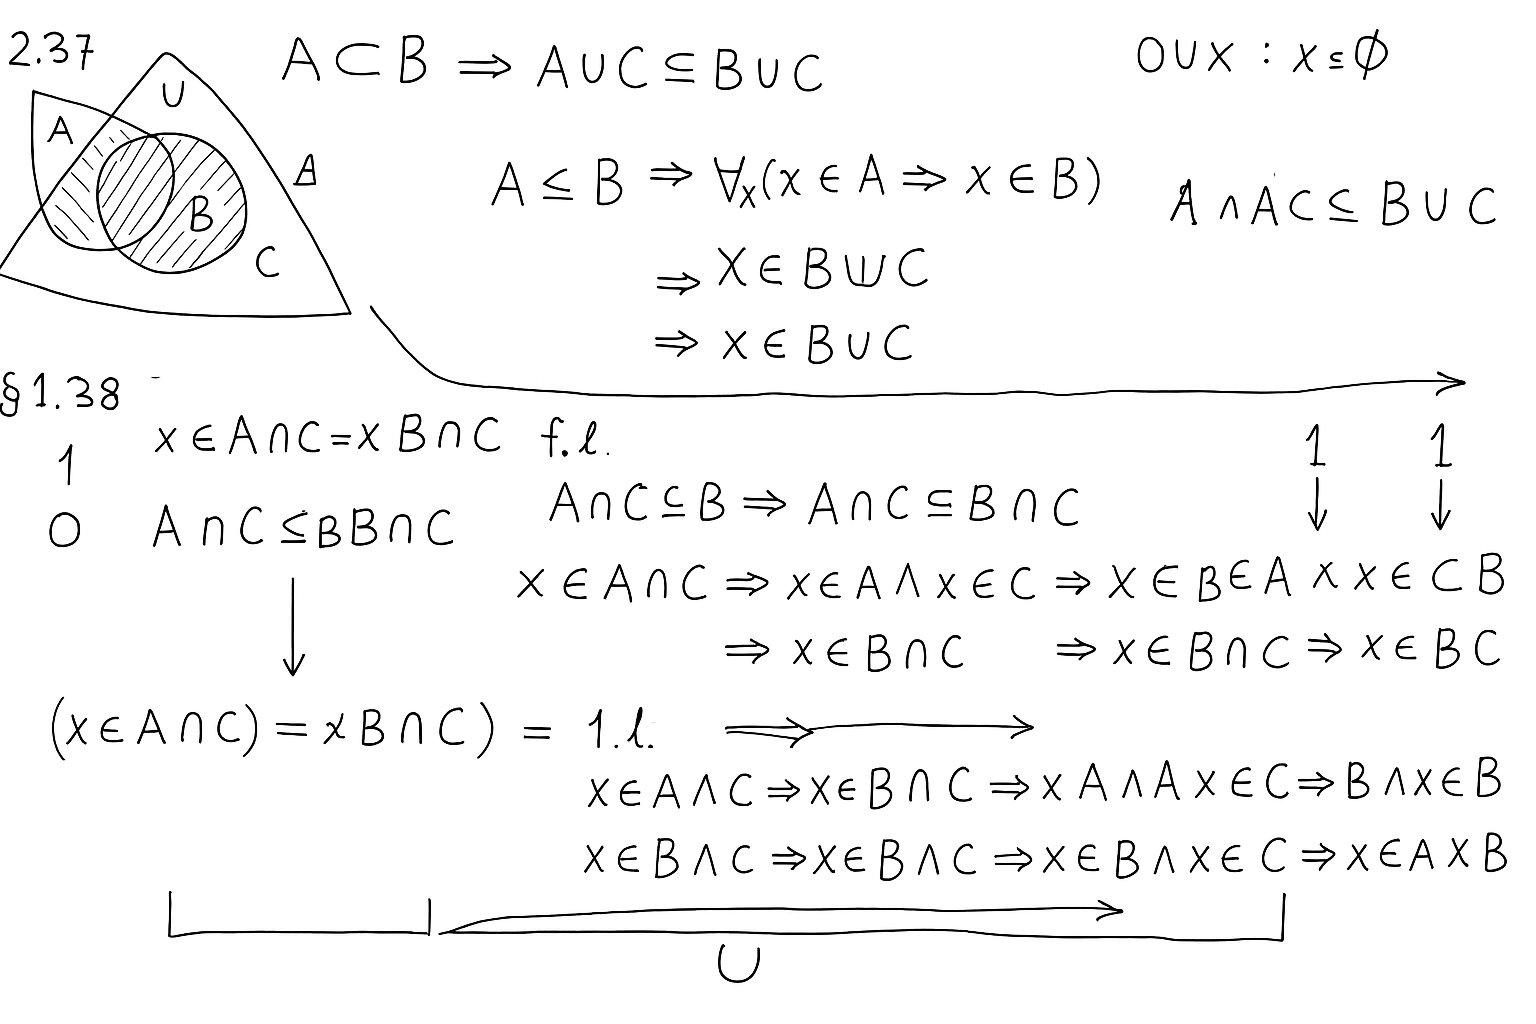 2.37
A ⊂ B ⇒ A ∪ C ⊆ B ∪ C
O U X : x ⊆ ∅
U
A
B
C
A
A ≤ B ⇒ ∀x(x ∈ A ⇒ x ∈ B)
A ∩ A C ⊆ B ∪ C
⇒ X ∈ B ⊎ C
⇒ x ∈ B ∪ C
§1.38
1
x ∈ A ∩ C = x B ∩ C f.l.
1 1
O
A ∩ C ≤ B B ∩ C
A ∩ C ⊆ B ⇒ A ∩ C ⊆ B ∩ C
↓ ↓
x ∈ A ∩ C ⇒ x ∈ A ∧ x ∈ C ⇒ x ∈ B ∈ A x x ∈ C B
↓
⇒ x ∈ B ∩ C ⇒ x ∈ B ∩ C ⇒ x ∈ B C
(x ∈ A ∩ C) = x B ∩ C) = 1.l. ⇒ →
x ∈ A ∧ C ⇒ x ∈ B ∩ C ⇒ x A ∧ A x ∈ C ⇒ B ∧ x ∈ B
x ∈ B ∧ C ⇒ x ∈ B ∧ C ⇒ x ∈ B ∧ x ∈ C ⇒ x ∈ A X B
U